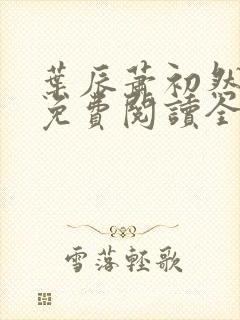 葉辰蕭初然
免費閱讀全
雪落輕歌